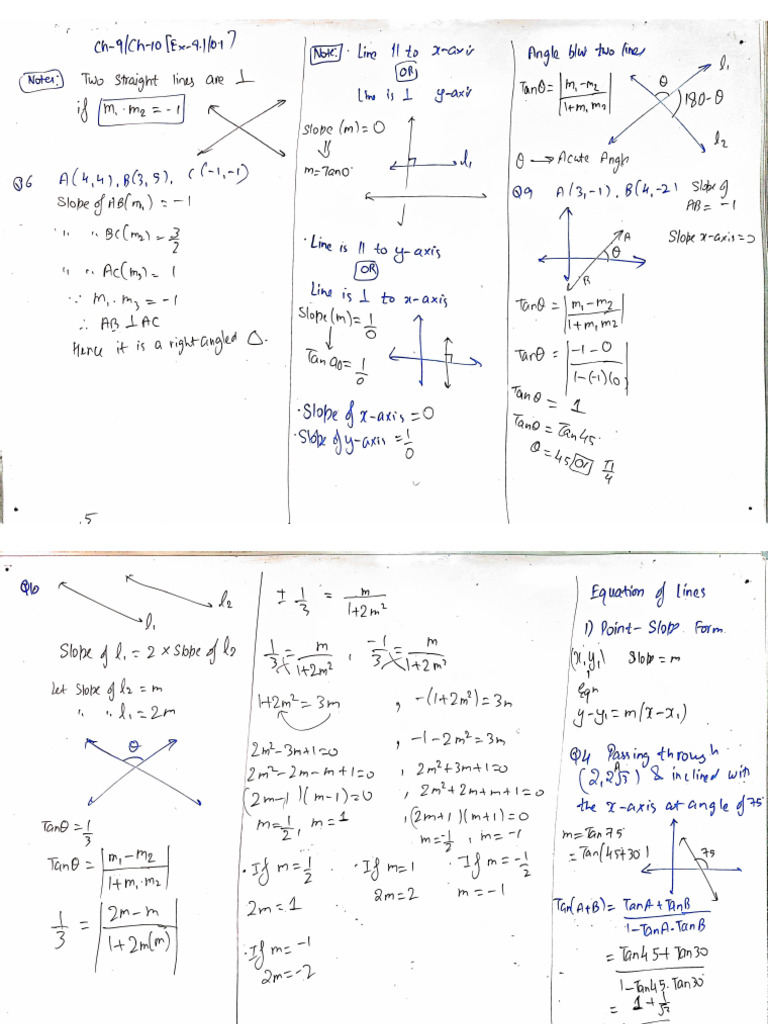 Ch-9/Ch-10 [Ex-9.1/10.1]
Notes: Two straight lines are ⊥
if m₁·m₂ = -1
Q6 A(4,4), B(3,5), C(-1,-1)
Slope of AB(m₁) = -1
" " BC(m₂) = 3/2
" " AC(m₃) = 1
∵ m₁·m₃ = -1
∴ AB ⊥ AC
Hence it is a right angled Δ.
.5
Note: · Line || to x-axis
OR
Line is ⊥ y-axis
Slope (m) = 0
⇓
m = Tan0
l₁
· Line is || to y-axis
OR
Line is ⊥ to x-axis
Slope (m) = 1/0
Tan 90 = 1/0
· Slope of x-axis = 0
· Slope of y-axis = 1/0
Angle b/w two lines
Tanθ = |m₁-m₂ / 1+m₁m₂|
l₁
θ
180-θ
l₂
θ → Acute Angle
Q9 A(3,-1), B(4,-2) Slope of AB = -1
Slope x-axis = 0
A
θ
B
Tanθ = |m₁-m₂ / 1+m₁m₂|
Tanθ = |-1-0 / 1-(-1)(0)|
Tanθ = 1
Tanθ = Tan45
θ = 45 OR π/4
Q10
l₂
l₁
Slope of l₁ = 2 × Slope of l₂
Let slope of l₂ = m
" " l₁ = 2m
θ
Tanθ = 1/3
Tanθ = |m₁-m₂ / 1+m₁·m₂|
1/3 = |2m-m / 1+2m(m)|
± 1/3 = m / 1+2m²
1/3 = m / 1+2m² , -1/3 = m / 1+2m²
1+2m² = 3m , -(1+2m²) = 3m
2m²-3m+1=0 , -1-2m² = 3m
2m²-2m-m+1=0 , 2m²+3m+1=0
(2m-1)(m-1)=0 , 2m²+2m+m+1=0
m=1/2, m=1 , (2m+1)(m+1)=0
m=-1/2, m=-1
· If m=1/2 · If m=1 · If m=-1/2
2m=1 2m=2 m=-1
· If m=-1
2m=-2
Equation of lines
1) Point-Slope Form
(x₁,y₁) Slop = m
Eqn
y-y₁ = m(x-x₁)
Q4 Passing through
A
(2, 2√3) & inclined with
the x-axis at angle of 75
m = Tan 75
= Tan(45+30)
75
Tan(A+B) = TanA+TanB / 1-TanA·TanB
= Tan45+Tan30 / 1-Tan45·Tan30
= 1+1/√3